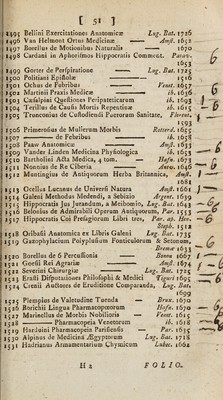 [ 51 ]
1495 Bellini Exercitationes Anatomicæ Lug. Bat. 1726
1496 Van Helmont Ortus Medicinæ Amst. 1652
1497 Borellus de Motionibus Naturalis 1670
1498 Cardani in Aphorismos Hippocratis Comment. Patav.
1653
1499 Gorter de Perspiratione Lug. Bat. 1725
1500 Politiani Epistolæ 1516
1501 Ochus de Febribus 1657
1502 Martini Praxis Medicæ ib. 1636
1503 Cæsalpini Quæstiones Peripateticarum ib. 1693
1504 Terillus de Causis Mortis Repentinæ ib. 1615
1505 Tronconius de Custodiendi Puerorum Sanitate, Florent.
1506 Primerosius de Mulierum Morbis Roterod. 1655
1507 de Febribus ib. 1658
1508 Anatomicæ Amst.
1509 Vander Linden Medicina Physiologica ib. 1653
1510 Bartholini Acta Medica, 4 tom. Hafn. 1673
1511 Nonnius de Re Ciberia Antw. 1645
1512 Muntingius de Antiquorum Herba Britannica, Amst.
1681
1513 Ocellus Lucanus de Universi Natura Amst. 1661
1514 Galeni Methodus Medendi, a Sebizio Argent. 1639
1515 Hippocratis Jus Jurandum, a Meibomio, Lug. Bat. 1643
1516 Belonius de Admirabili Operum Antiquorum, Par. 1553
1517 Hippocratis Coi Purgatorum Libri tres, Par. ap. Hen.
Steph. 1512
1518 Oribasii Anatomica ex Libris Galeni Lug. Bat. 1735
1519 Gazophylacium Polyplusium Fonticulorum & Setonum,
Bremæ 1633
1520 Borellus de 6 Percussionis Bonon 1667
1521 Goesii Rei Agrariæ Amst. 1674
1522 Severini Chirurgiæ Lug. Bat. 1725
1523 Erasti Disputationes Philosophi & Medici Tiguri 1595
1524 Crenii Auctores de Eruditione Comparanda, Lug. Bat.
1699
1525 Plempius de Valetudine Tuenda Brux. 1670
1526 Borichii Lingua Pharmacopœorum Hafn. 1670
1527 Marinellus de Morbis Nobilioris Venet. 1615
1528 Pharmacopeia Venetorum ib. 1618
1529 Harduini Pharmacopeia Parisiensis Par. 1635
1530 Alpinus de Medicina Ægyptiorum Lug. Bat. 1718
1531 Hadrianus Armamentarium Chymicum Lubec. 1662
H 2 FOLIO.